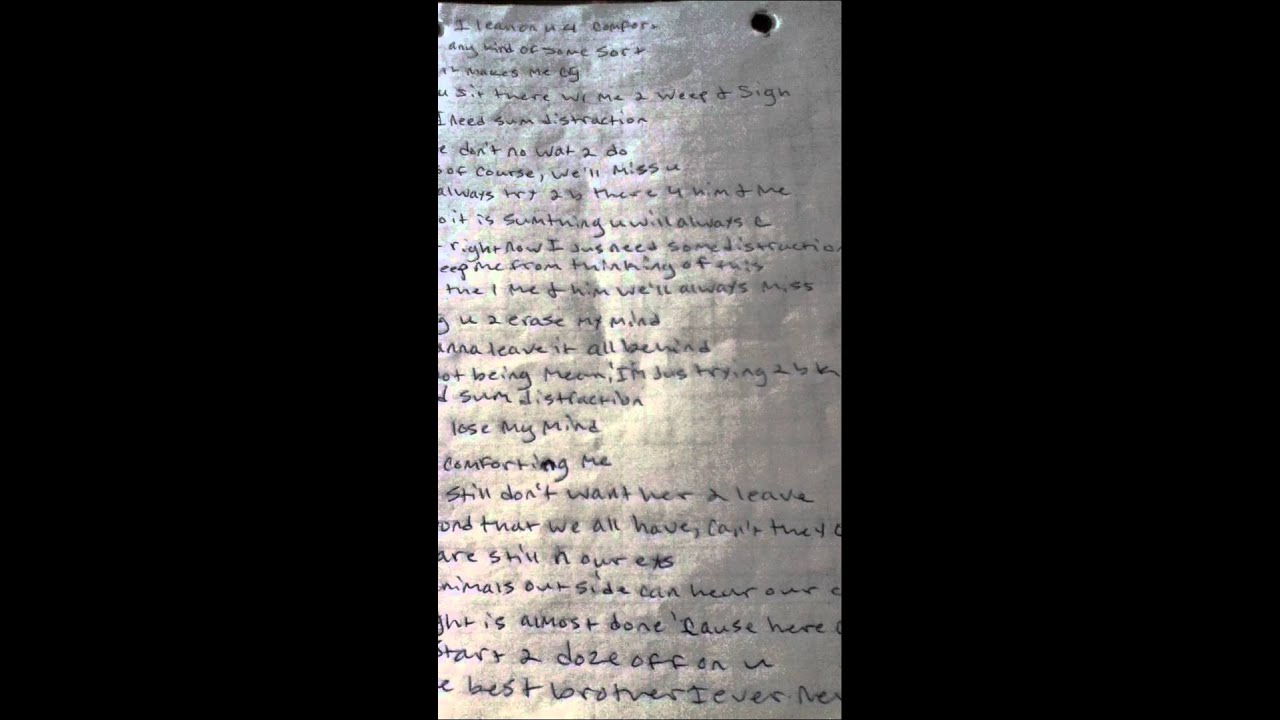 I lean on u 4 comfort
any kind of some sort
it makes me cry
u sit there w/ me 2 weep & sigh
I need sum distraction
don't no wat 2 do
of course, we'll miss u
always try 2 b there 4 him & me
it is sumthing u will always c
right now I jus need some distraction
eep me from thinking of this
the 1 me & him we'll always miss
g u 2 erase my mind
anna leave it all behind
ot being mean, I'm jus trying 2 b k
d sum distraction
lose my mind
comforting me
still don't want her 2 leave
ond that we all have, can't they c
are still n our eys
nimals outside can hear our c
ght is almost done 'cause here c
start 2 doze off on u
e best brother I ever